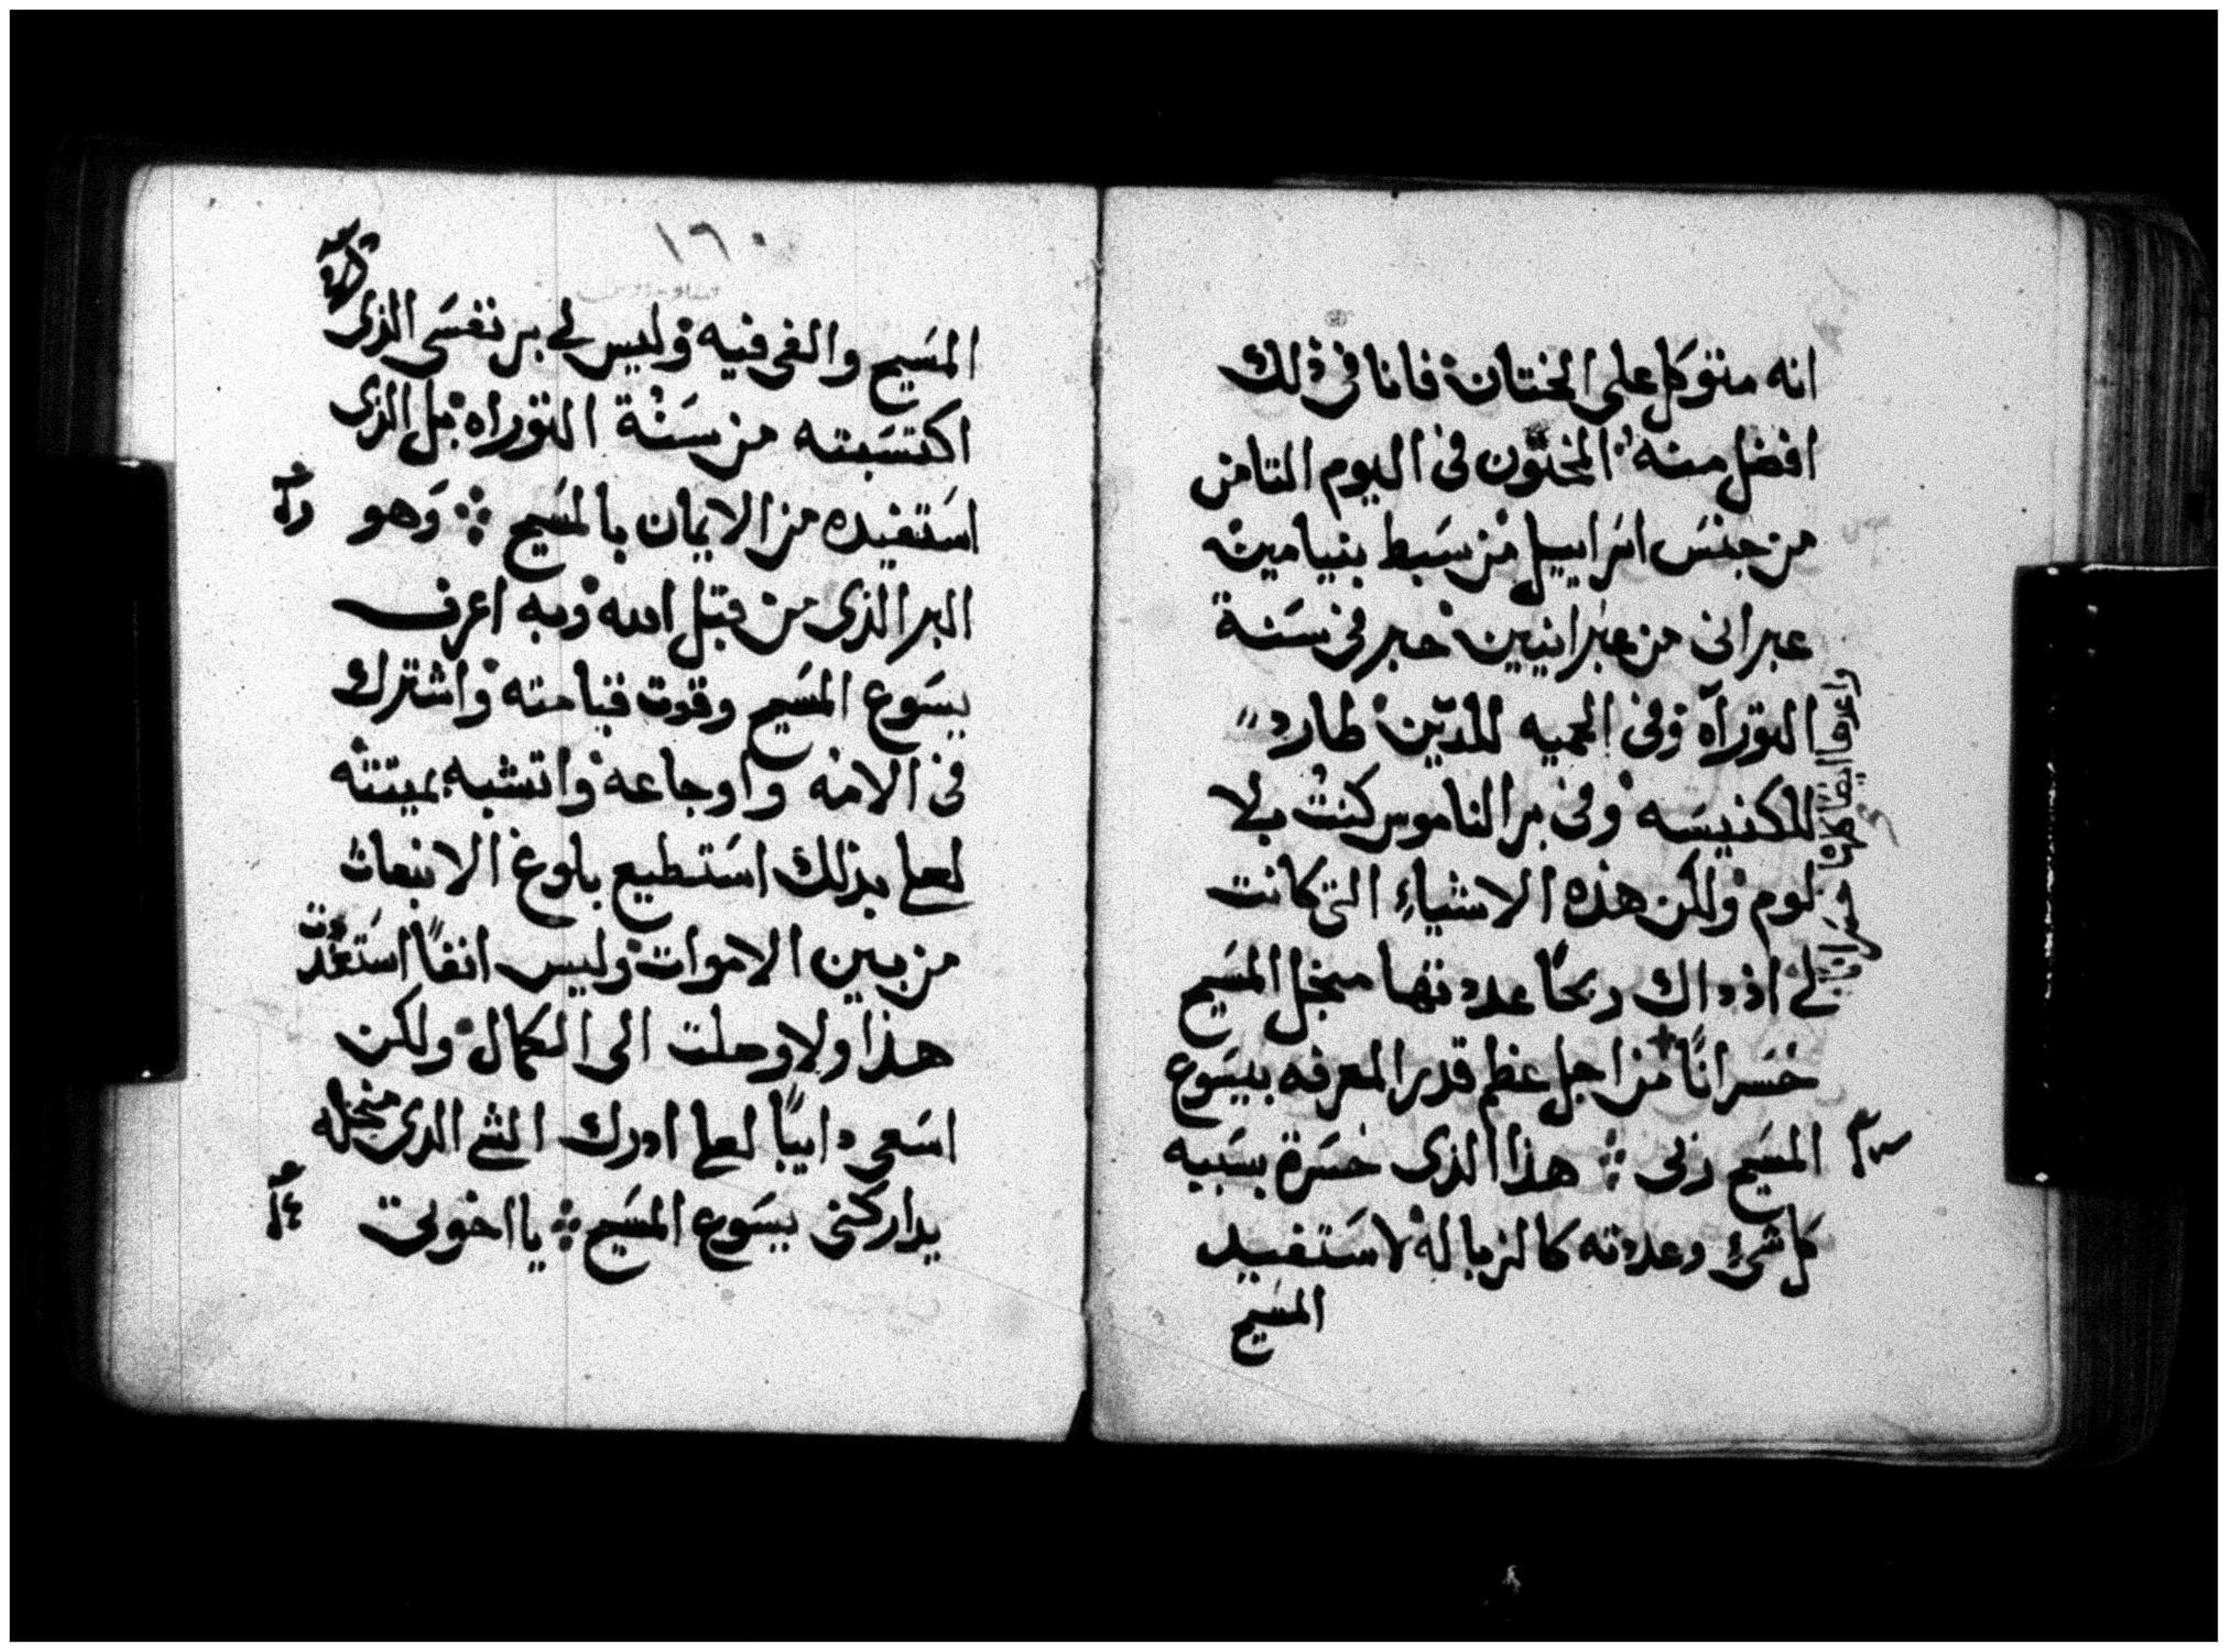 انه متوكل على الختان فانا فى ذلك
افضل منه المختون فى اليوم الثامن
من جنس اسراييل من سبط بنيامين
عبرانى من عبرانيين حبر فى سنة
التوراه وفى الحميه للدين طارد
للكنيسه وفى بر الناموس كنت بلا
لوم ولكن هذه الاشياء التى كانت
لى اذ داك ربحًا عددتها من اجل المسيح
خسرانًا من اجل عظم قدر المعرفه بيسوع
المسيح ربى هذا الذى خسرة بسببه
كل شىء وعددته كالزباله لاستفيد
المسيح
واعرف ايضا كلها خسرانا
١٦٠
المسيح والفى فيه وليس لى بر نفسى الذى
اكتسبته من سنة التوراه بل الذى
استفيده من الايمان بالمسيح وهو
البر الذى من قبل الله وبه اعرف
يسوع المسيح وقوت قيامته واشترك
فى الامه واوجاعه واتشبه بميتته
لعلى بذلك استطيع بلوغ الانبعاث
من بين الاموات وليس انفًا استفدت
هذا ولا وصلت الى الكمال ولكن
اسعى دايبًا لعلى ادرك الشى الدى من اجله
يداركنى يسوع المسيح يا اخوتى